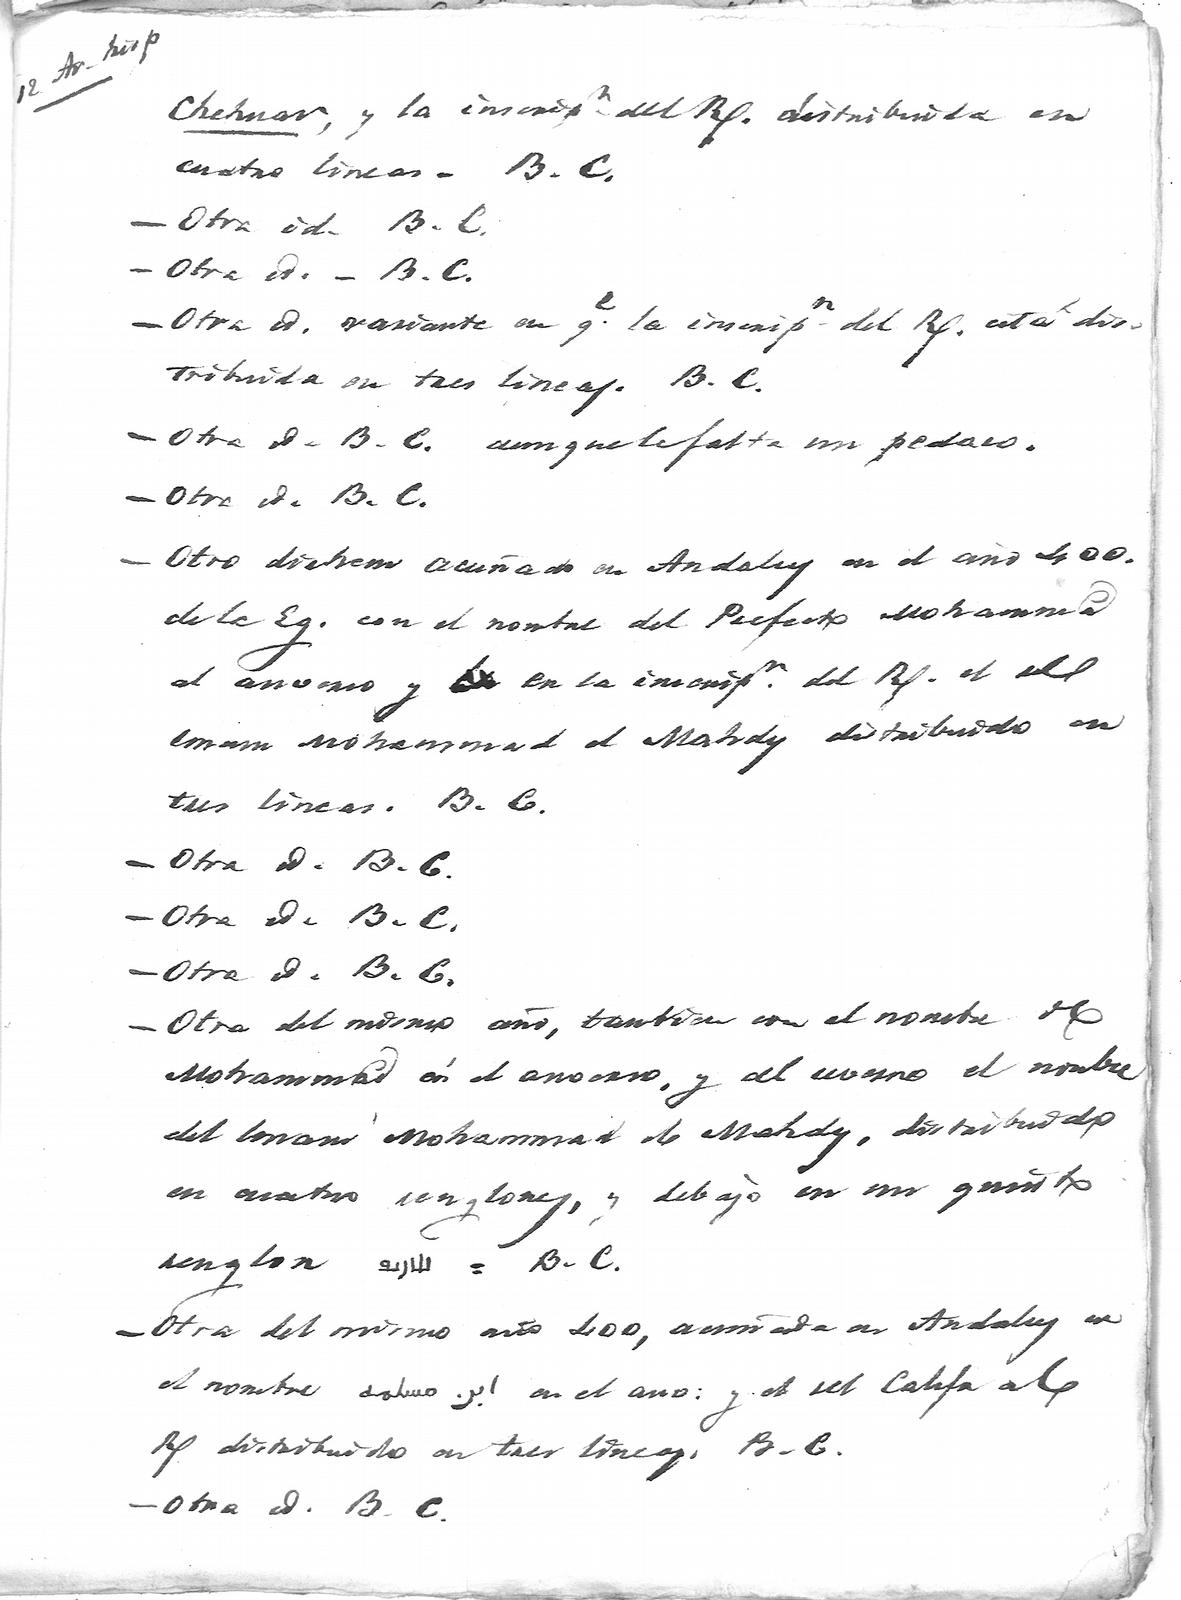 12 Ar-hisp
Chehuar, y la inscripn del Rf. distribuida en
cuatro lineas - B. C.
- Otra id. B. C.
- Otra id. - B. C.
- Otra id. variante en qe la inscripn del Rf. está dis-
tribuida en tres lineas. B. C.
- Otra id. B. C. aunque le falta un pedazo.
- Otra id. B. C.
- Otro dirhem acuñado en Andalus en el año 400.
de la Eg. con el nombre del Prefecto Mohammed
al anverso y en la inscripn del Rf. el del
Imam Mohammad el Mahdy distribuido en
tres lineas. B. C.
- Otra id. B. C.
- Otra id. B. C.
- Otra id. B. C.
- Otra del mismo año, tambien con el nombre de
Mohammad en el anverso, y al reverso el nombre
del Imam Mohammad el Mahdy, distribuido
en cuatro renglones, y debajo en un quinto
renglon = B. C.
- Otra del mismo año 400, acuñada en Andalus con
el nombre ابن مسلمه en el anv: y el del Califa al
Rf distribuido en tres lineas. B. C.
- Otra id. B. C.